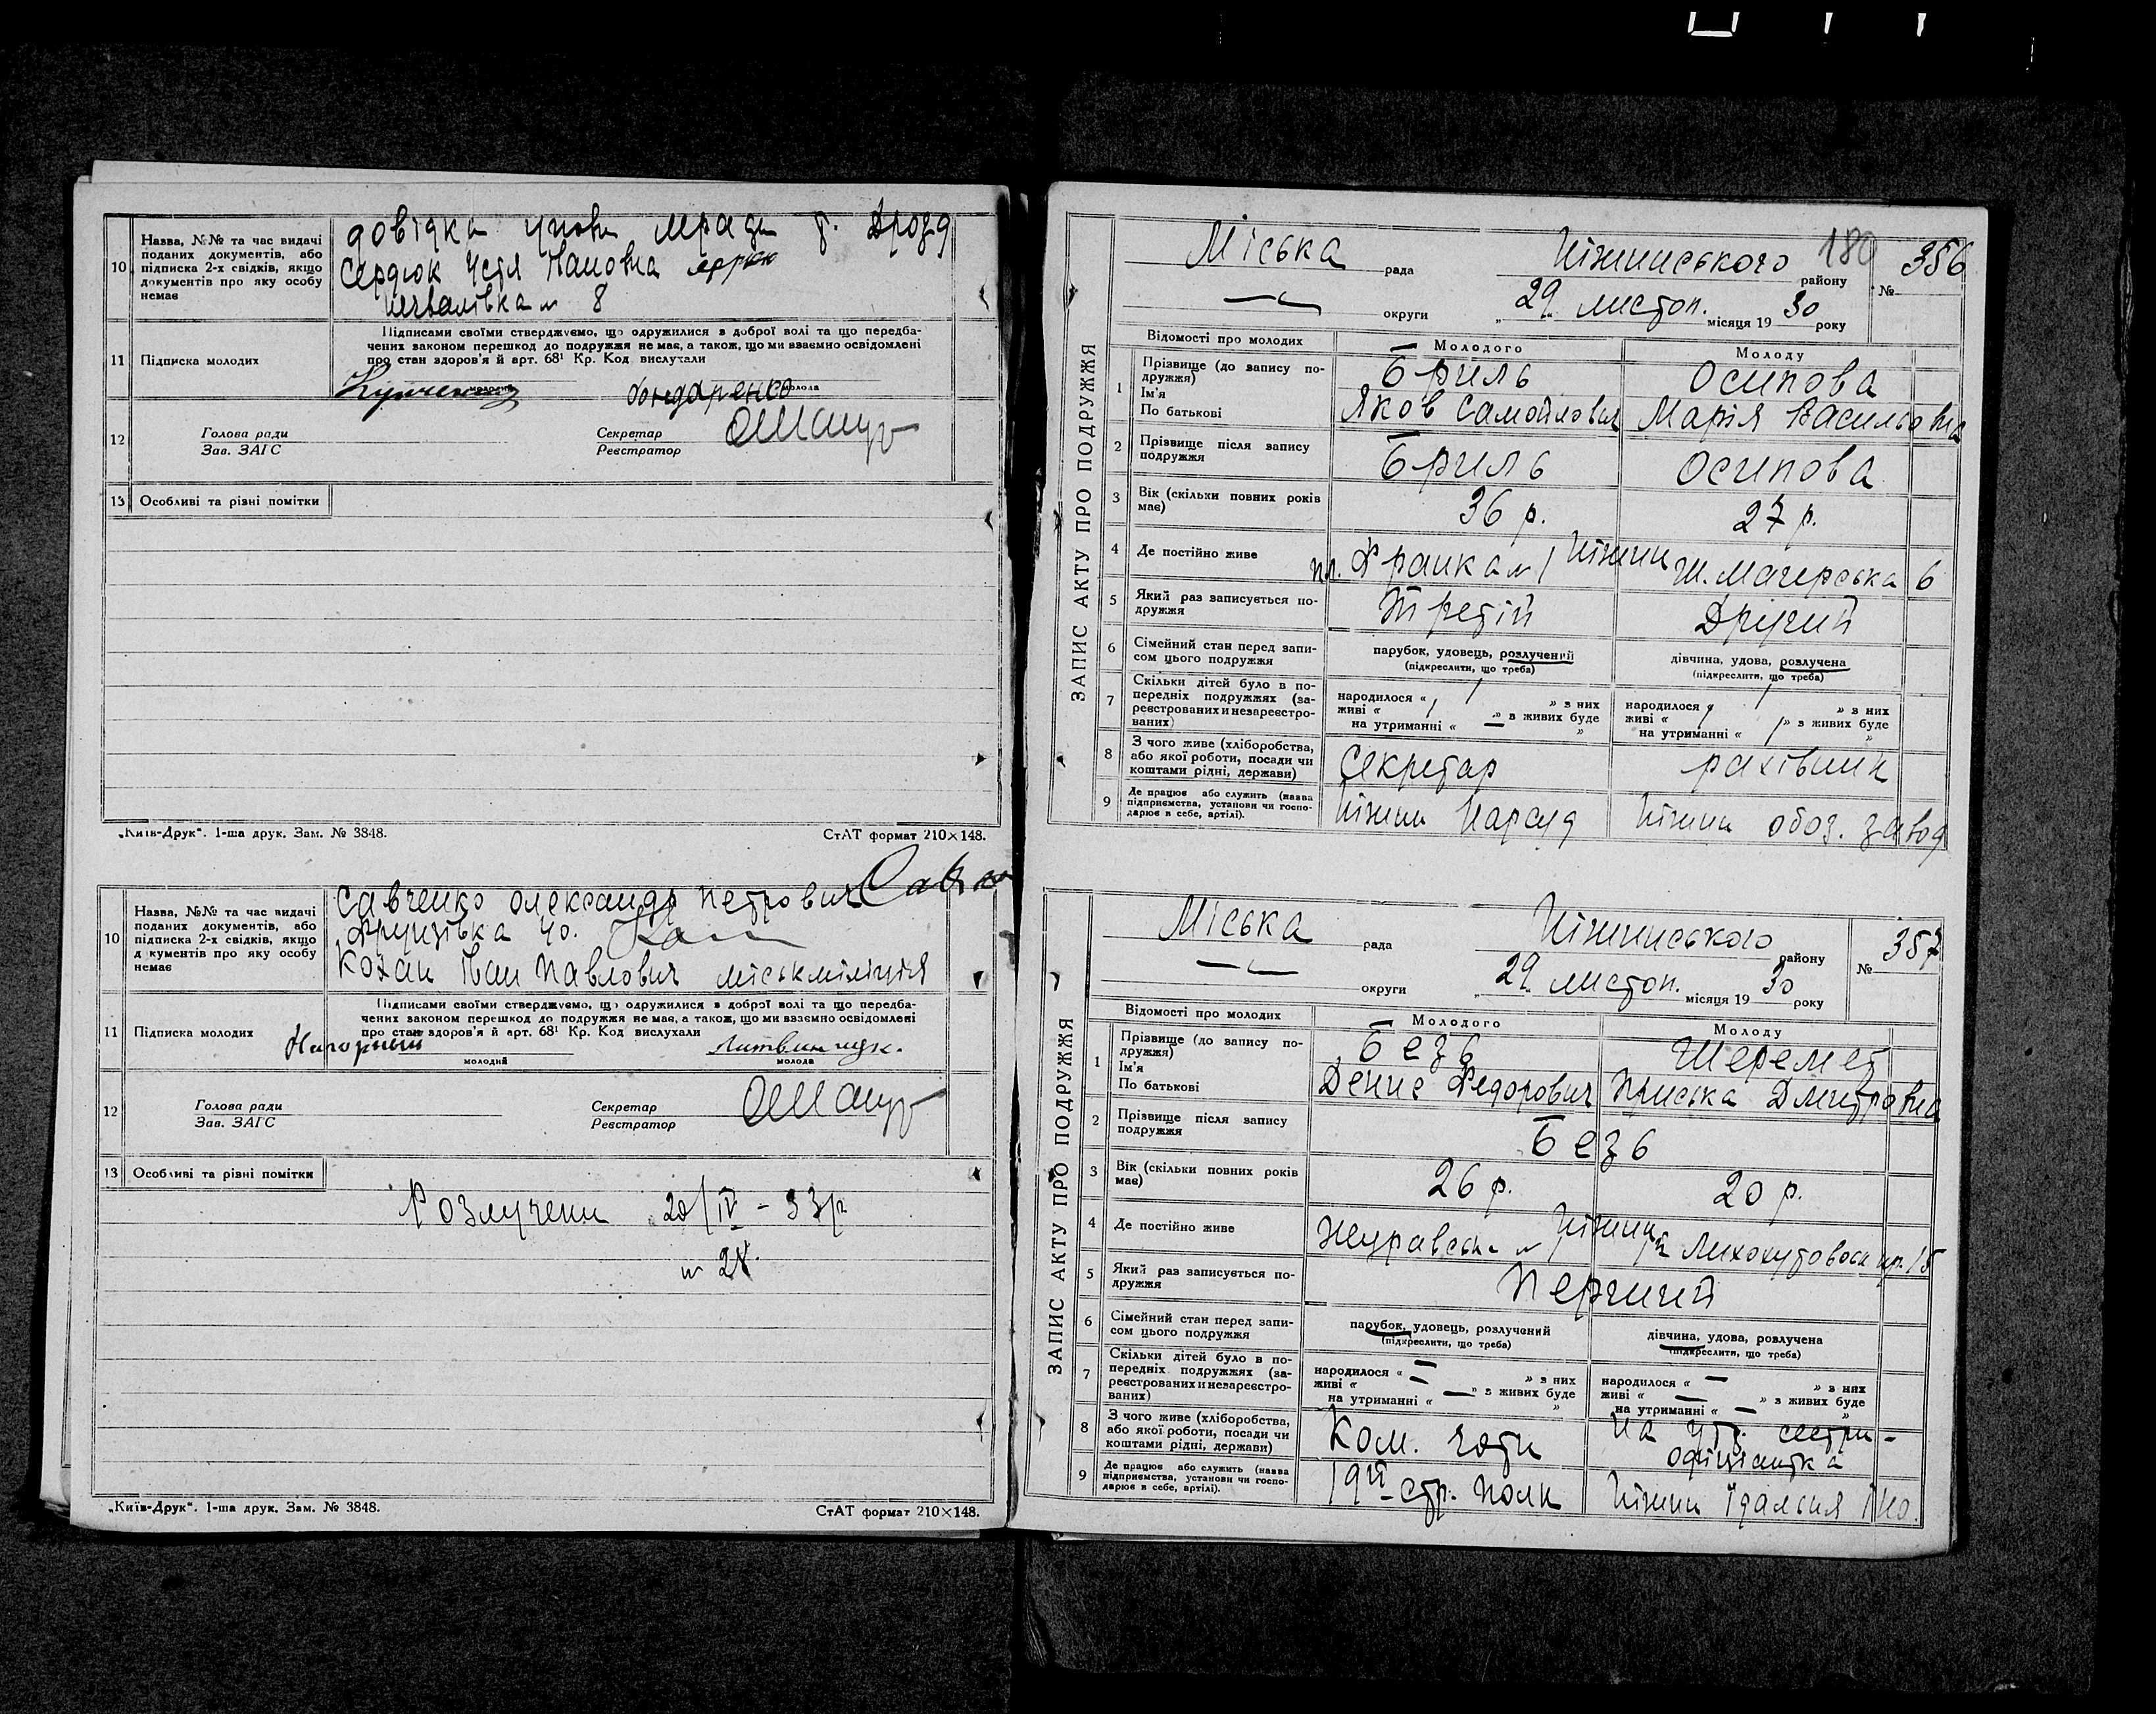 10 Назва, №№ та час видачі поданих документів, або підписка 2-х свідків, якщо документів про яку особу немає
довідка р. Дрозд
Сердюк Устя
8
11 Підписка молодих
Підписами своїми стверджуємо, що одружилися з доброї волі та що передба-
чених законом перешкод до подружжя не має, а також, що ми взаємно освідомлені
про стан здоров'я й арт. 68¹ Кр. Код вислухали
Бондаренко
молодий молода
12 Голова ради Секретар
Зав. ЗАГС Реєстратор
13 Особливі та різні помітки
„Київ-Друк“. 1-ша друк. Зам. № 3848. СтАТ формат 210×148.
10 Назва, №№ та час видачі поданих документів, або підписка 2-х свідків, якщо д кументів про яку особу немає
Савченко Олександр Петрович
Фрунзівка 40.
Кохан Іван Павлович міськміліція
11 Підписка молодих
Підписами своїми стверджуємо, що одружилися з доброї волі та що передба-
чених законом перешкод до подружжя не має, а також, що ми взаємно освідомлені
про стан здоров'я й арт. 68¹ Кр. Код вислухали
Нагорный
молодий молода
12 Голова ради Секретар
Зав. ЗАГС Реєстратор
13 Особливі та різні помітки
Розлучени 20/IV - 33р
„Київ-Друк“. 1-ша друк. Зам. № 3848. СтАТ формат 210×148.
ЗАПИС АКТУ ПРО ПОДРУЖЖЯ
180
Міська рада Ніжинського району № 356
округи „29 листоп. місяця 1930 року
Відомості про молодих Молодого Молоду
1 Прізвище (до запису по-
дружжя) Бриль Осипова
Ім'я
По батькові Яков Самойлович Марія Васильовна
2 Прізвище після запису
подружжя Бриль Осипова
3 Вік (скільки повних років
має) 36 р. 27 р.
4 Де постійно живе пл. Франка № 1 Ніжин Ш. Магерська 6
5 Який раз записується по-
дружжя Третій Другий
6 Сімейний стан перед запи-
сом цього подружжя
парубок, удовець, розлучений дівчина, удова, розлучена
(підкреслити, що треба) (підкреслити, що треба)
7 Скільки дітей було в по-
передніх подружжях (за-
реєстрованих и незареєстро-
ваних)
народилося « 1 » з них народилося « 1 » з них
живі « 1 » з живих буде живі « 1 » з живих буде
на утриманні « — » на утриманні « 1 »
8 З чого живе (хліборобства,
або якої роботи, посади чи
коштами рідні, держави) Секретар рахівник
9 Де працює або служить (назва
підприємства, установи чи госпо-
дарює в себе, артілі). Ніжин Нарсуд Ніжин обоз. завод
ЗАПИС АКТУ ПРО ПОДРУЖЖЯ
Міська рада Ніжинського району № 357
округи „29 листоп. місяця 1930 року
Відомості про молодих Молодого Молоду
1 Прізвище (до запису по-
дружжя) Безь Шеремет
Ім'я
По батькові Денис Федорович Приська Дмитровна
2 Прізвище після запису
подружжя Безь
3 Вік (скільки повних років
має) 26 р. 20 р.
4 Де постійно живе Ніжин
5 Який раз записується по-
дружжя Перший
6 Сімейний стан перед запи-
сом цього подружжя
парубок, удовець, розлучений дівчина, удова, розлучена
(підкреслити, що треба) (підкреслити, що треба)
7 Скільки дітей було в по-
передніх подружжях (за-
реєстрованих и незареєстро-
ваних)
народилося « — » з них народилося « — » з них
живі « — » з живих буде живі « — » з живих буде
на утриманні « — » на утриманні « — »
8 З чого живе (хліборобства,
або якої роботи, посади чи
коштами рідні, держави) Ком. роти на утр. сестри -
офіціантка
9 Де працює або служить (назва
підприємства, установи чи госпо-
дарює в себе, артілі). 19й стр. полк Ніжин їдальня